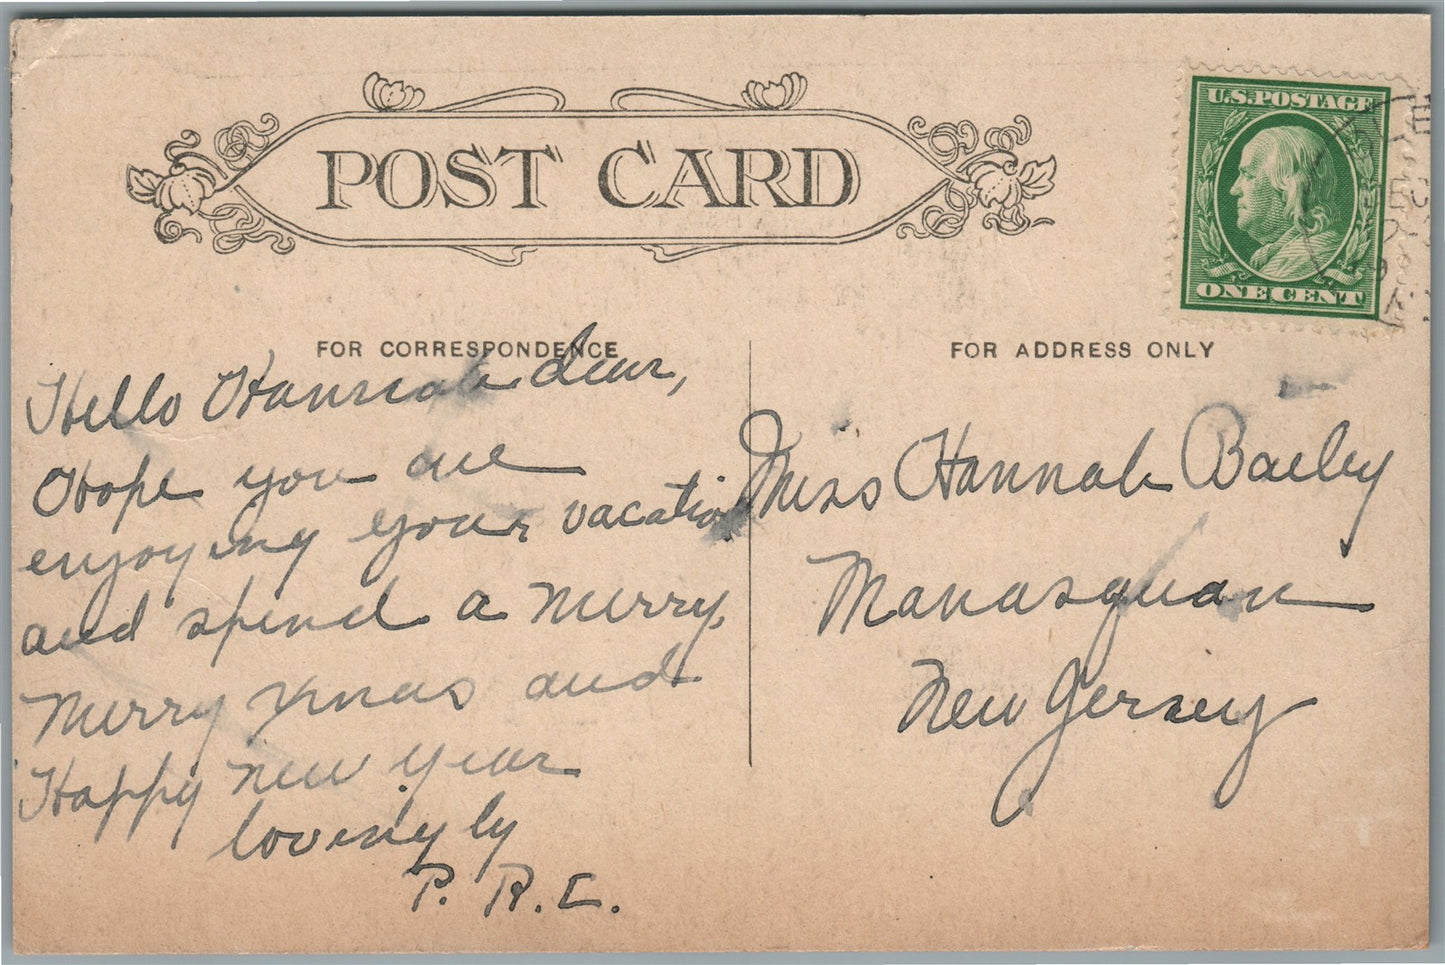 POST CARD
U.S. POSTAGE
ONE CENT
FOR CORRESPONDENCE
FOR ADDRESS ONLY
Hello Hannah dear,
Hope you are
enjoying your vacation
and spend a merry,
merry xmas and
Happy new year
lovingly
P. R. C.
Miss Hannah Bailey
Manasquan
New Jersey